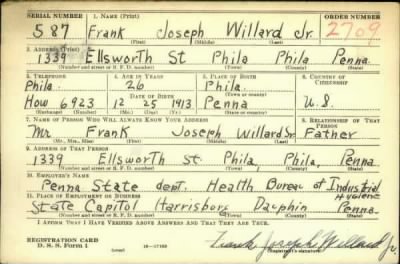 SERIAL NUMBER 1. NAME (Print) ORDER NUMBER
587 Frank Joseph Willard Jr. 2709
(First) (Middle) (Last)
2. ADDRESS (Print)
1339 Ellsworth St Phila Phila Penna.
(Number and street or R. F. D. number) (Town) (County) (State)
3. TELEPHONE 4. AGE IN YEARS 5. PLACE OF BIRTH 6. COUNTRY OF CITIZENSHIP
Phila. 26 Phila.
DATE OF BIRTH (Town or county)
How 6923 12 25 1913 Penna U.S.
(Exchange) (Number) (Mo.) (Day) (Yr.) (State or country)
7. NAME OF PERSON WHO WILL ALWAYS KNOW YOUR ADDRESS 8. RELATIONSHIP OF THAT PERSON
Mr Frank Joseph Willard Sr Father
(Mr., Mrs., Miss) (First) (Middle) (Last)
9. ADDRESS OF THAT PERSON
1339 Ellsworth St. Phila, Phila, Penna
(Number and street or R. F. D. number) (Town) (County) (State)
10. EMPLOYER'S NAME
Penna State dept. Health Bureau of Industrial Hygiene
11. PLACE OF EMPLOYMENT OR BUSINESS
State Capitol Harrisburg Dauphin Penna.
(Number and street or R. F. D. number) (Town) (County) (State)
I AFFIRM THAT I HAVE VERIFIED ABOVE ANSWERS AND THAT THEY ARE TRUE.
REGISTRATION CARD
D. S. S. Form 1 (over) 16—17105 Frank Joseph Willard Jr.
(Registrant's signature)